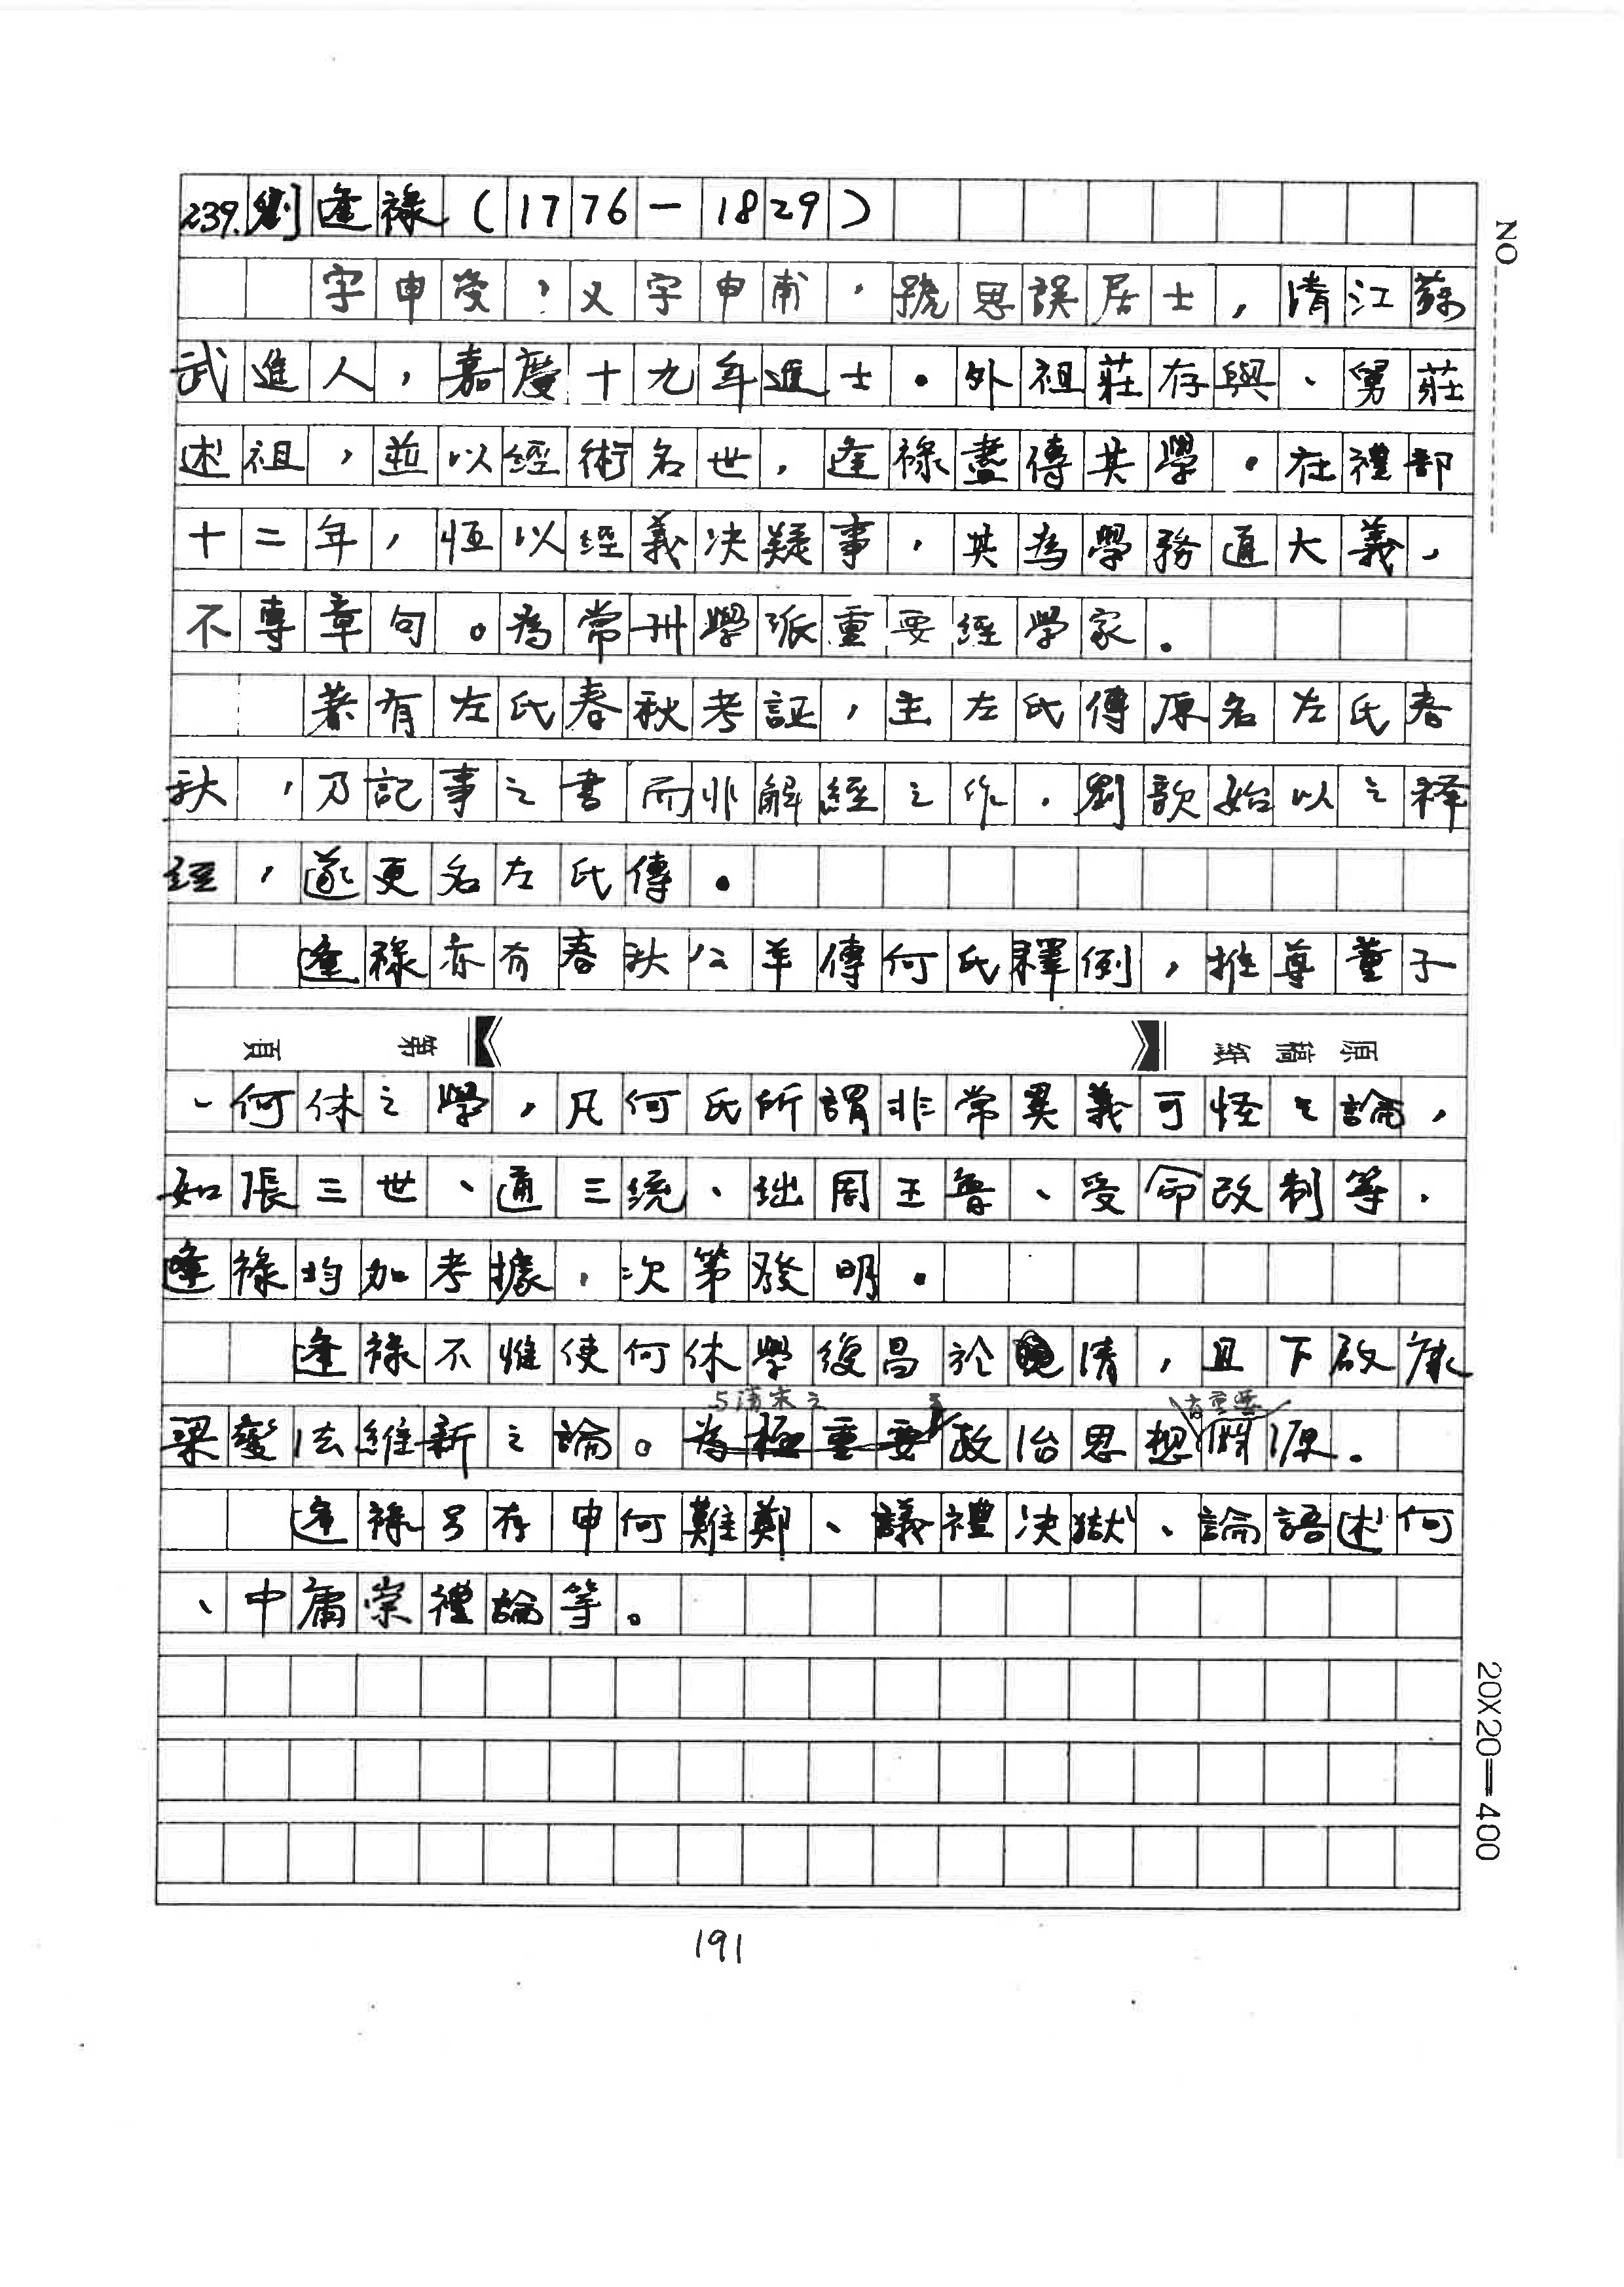 239.劉逢祿(1776-1829)
字申受,又字申甫,號思誤居士,清江蘇
武進人,嘉慶十九年進士。外祖莊存與、舅莊
述祖,並以經術名世,逢祿盡傳其學。在禮部
十二年,恆以經義決疑事,其為學務通大義,
不專章句。為常州學派重要經學家。
著有左氏春秋考証,主左氏傳原名左氏春
秋,乃記事之書而非解經之作,劉歆始以之釋
經,遂更名左氏傳。
逢祿亦有春秋公羊傳何氏釋例,推尊董子
原稿紙 第 頁
、何休之學,凡何氏所謂非常異義可怪之論,
如張三世、通三統、絀周王魯、受命改制等,
逢祿均加考據,次第發明。
逢祿不惟使何休學復昌於清,且下啟康
與清末之 有重要
梁變法維新之論。為極重要政治思想淵源。
逢祿另存申何難鄭、議禮決獄、論語述何
、中庸崇禮論等。
NO
20X20=400
191